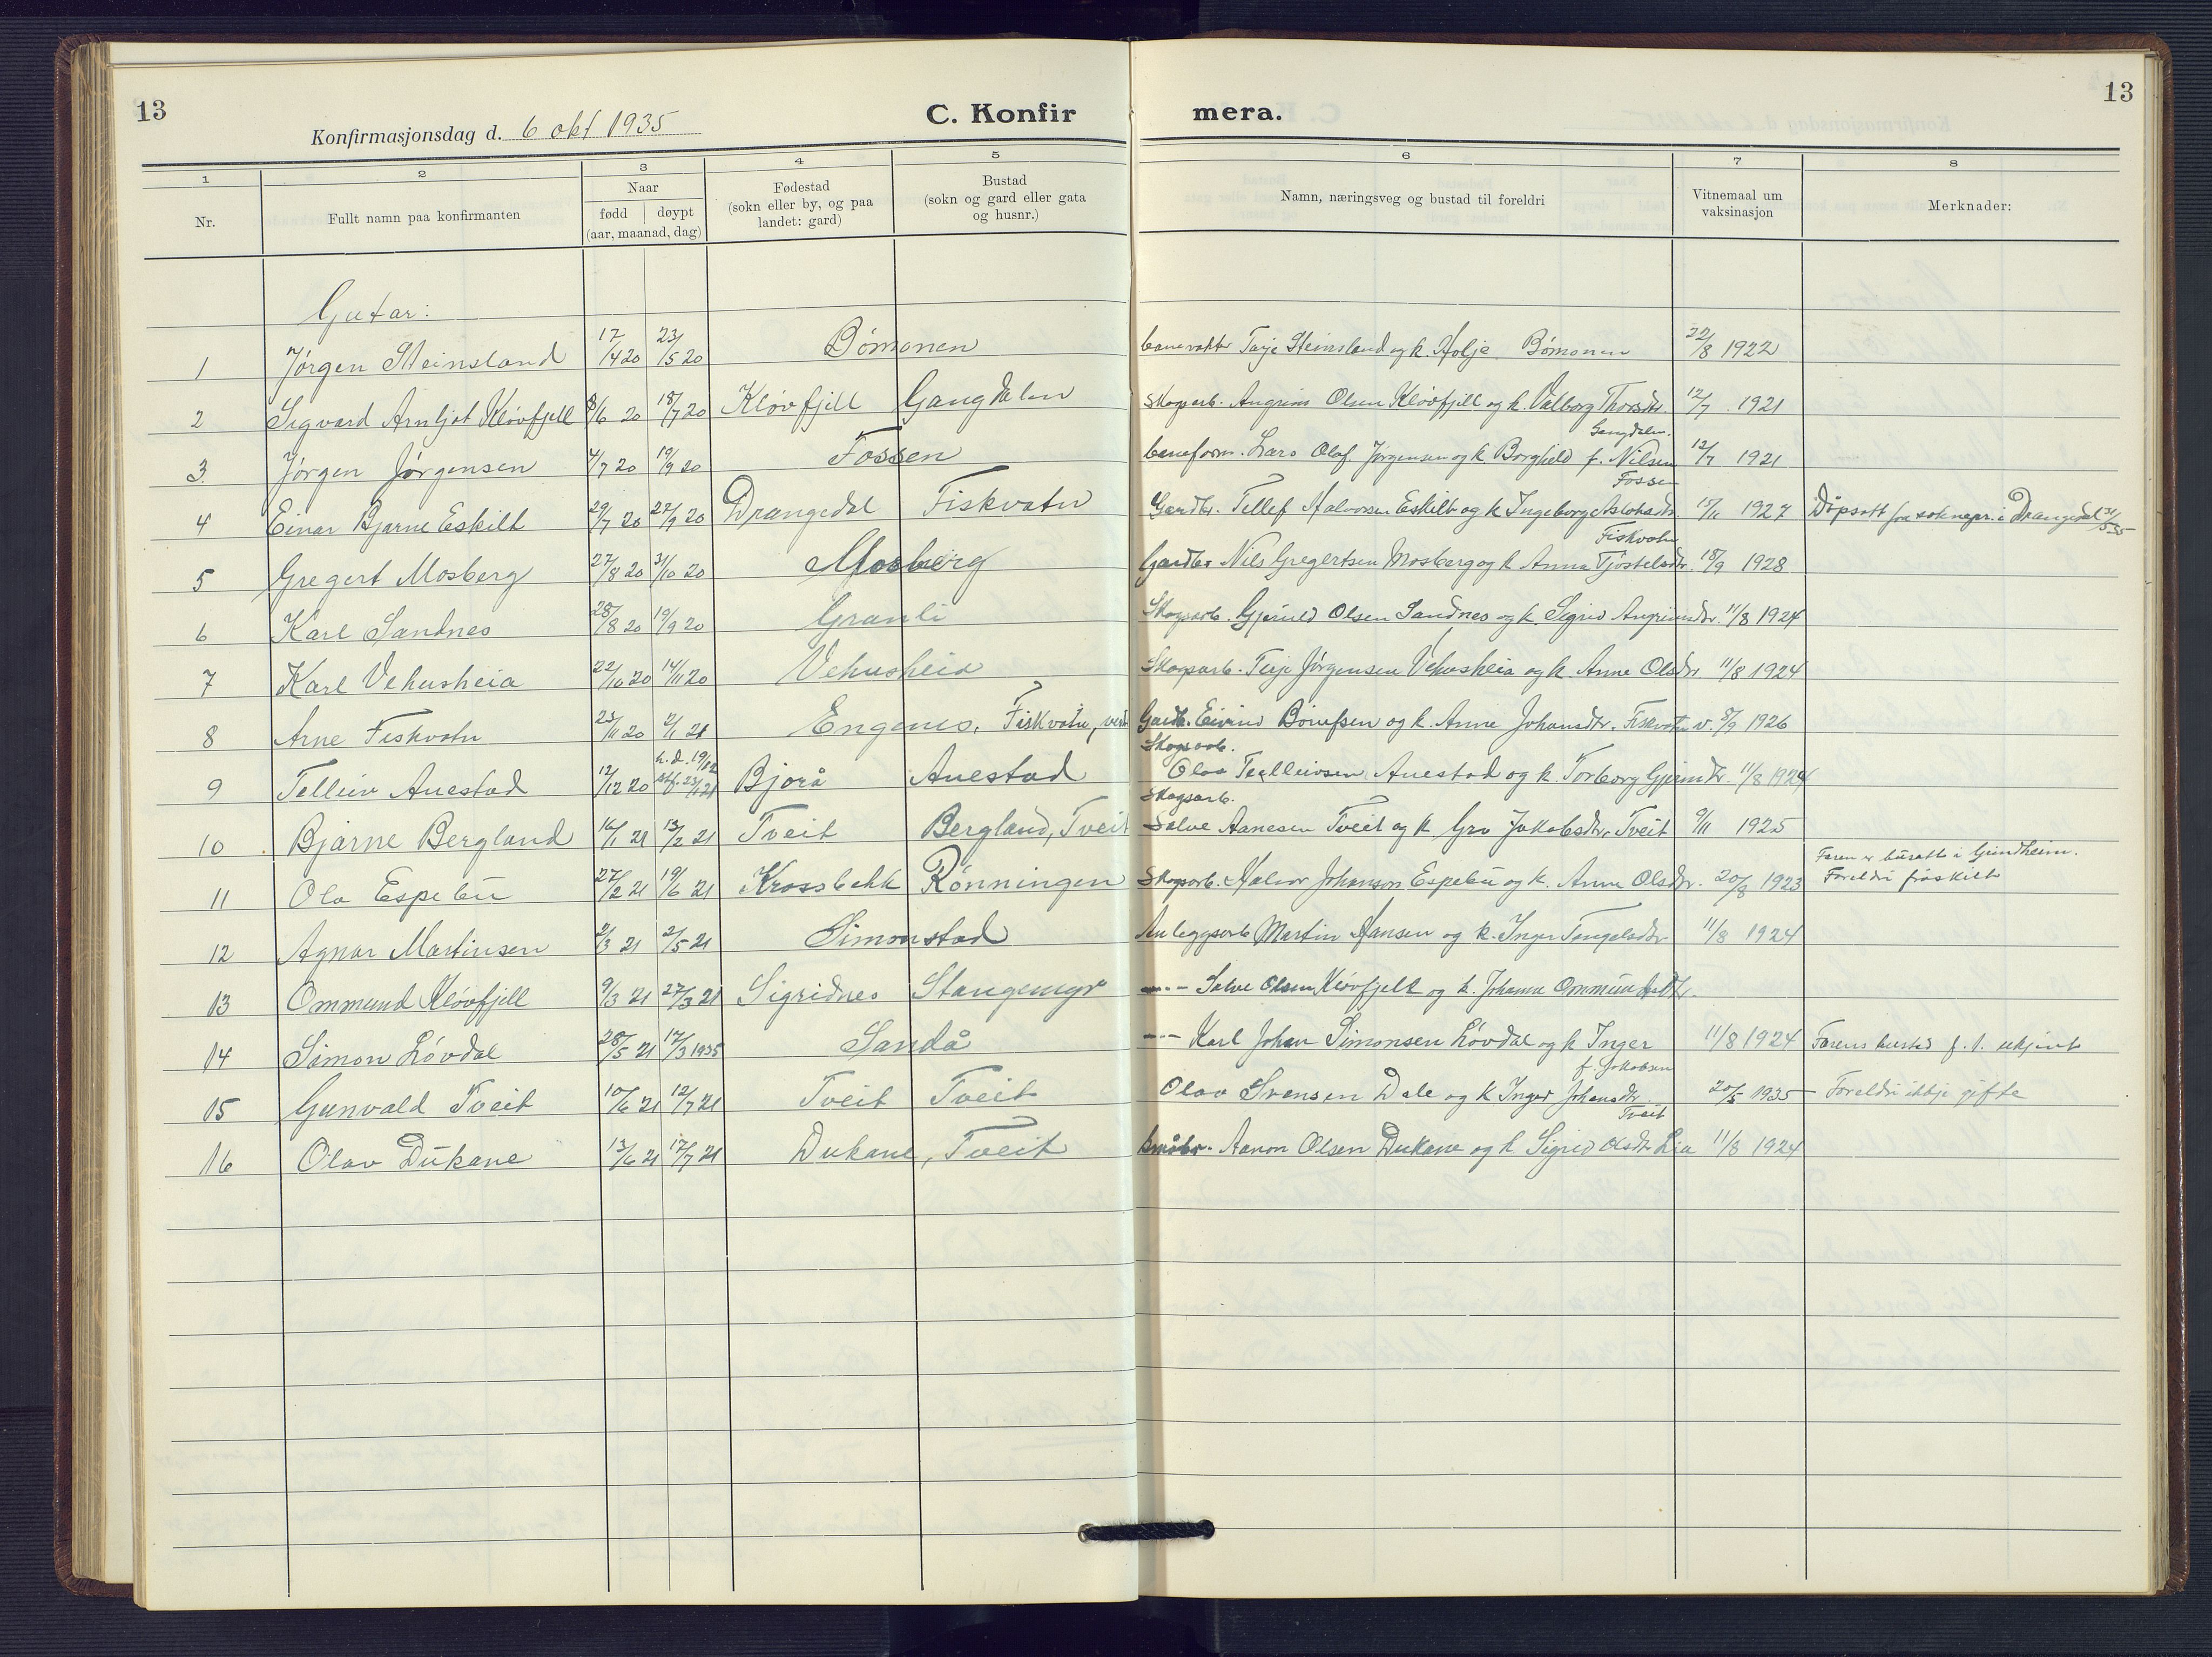 13
Konfirmasjonsdag d. 6 okt 1935
C. Konfirmera.
13
1 2 3 4 5 6 7 8
Nr.
Fullt namn paa konfirmanten
Naar
fødd døypt
(aar, maanad, dag)
Fødestad
(sokn eller by, og paa
landet: gard)
Bustad
(sokn og gard eller gata
og husnr.)
Namn, næringsveg og bustad til foreldri
Vitnemaal um
vaksinasjon
Merknader:
Gutar:
1 Jørgen Steinsland 17/4 20 23/5 20 Bömonen banevakt Tarje Steinsland og k. Holje Bömonen 22/8 1922
2 Sigvard Arnljot Klövfjell 8/6 20 18/7 20 Klövfjell Gangdalen Skogsarb. Angrim Olsen Klövfjell og k. Valborg Thorsdtr. Gangdalen. 12/7 1921
3 Jørgen Jørgensen 4/7 20 19/9 20 Fossen baneform. Lars Olaf Jørgensen og k. Borghild f. Nilsen Fossen 12/7 1921
4 Einar Bjarne Eskilt 29/7 20 27/9 20 Drangedal Fiskvatn Gardbr. Tellef Halvorsen Eskilt og k Ingeborg Aslaksdtr. Fiskvatn 15/11 1927 Döpsatt fra soknepr. i Drangedal 31/5 35
5 Gregert Mosberg 27/8 20 31/10 20 Mosberg Gardbr Nils Gregertsen Mosberg og k Anna Tjöstelsdtr. 18/9 1928
6 Karl Sandnes 28/8 20 19/9 20 Granli Skogsarb. Gjeruld Olsen Sandnes og k. Sigrid Angrimsdtr. 11/8 1924
7 Karl Vehusheia 22/10 20 14/11 20 Vehusheia Skogsarb. Terje Jørgensen Vehusheia og k. Anne Olsdtr 11/8 1924
8 Arne Fiskvatn 23/11 20 2/1 21 Engenes, Fiskvatn, vest Gardb. Eivind Böiufsen og k. Anne Johansdtr. Fiskvatn v. 8/9 1926
9 Telleiv Auestad 12/12 20 h.d. 19/12 stf. 23/1 21 Bjorå Auestad Skogsarb. Olav Tellleivsen Auestad og k. Torborg Gjerimdtr. 11/8 1924
10 Bjarne Bergland 16/1 21 13/2 21 Tveit Bergland, Tveit Skogsarb. Salve Aanesen Tveit og k Gro Jakobsdtr, Tveit 9/11 1925
11 Ola Espebu 27/2 21 19/6 21 Krossbekk Rönningen Skogsarb. Halvor Johanson Espebu og k. Anne Olsdtr. 20/8 1923 Faren er busatt i Grindheim. Foreldri fråskilt
12 Agnar Martinsen 2/3 21 2/5 21 Simonstad Anleggsarb Martin Hansen og k. Inger Tengelsdtr 11/8 1924
13 Ommund Klövfjell 9/3 21 27/3 21 Sigridnes Stangemyr –"– Salve Olsen Klövfjell og k. Johanne Ommundsdtr.
14 Simon Lövdal 28/5 21 17/3 1935 Sandå –"– Karl Johan Simonsen Lövdal og k Inger f. Jakobsen 11/8 1924 Farens bustad f. t. ukjent
15 Gunvald Tveit 10/6 21 12/7 21 Tveit Tveit Olav Svensen Dale og k Inger Johansdtr. Tveit 20/5 1935 Foreldri ikkje gifte
16 Olav Dukane 13/6 21 17/7 21 Dukane, Tveit Småbr. Aanon Olsen Dukane og k. Sigrid Olsdtr Lia 11/8 1924